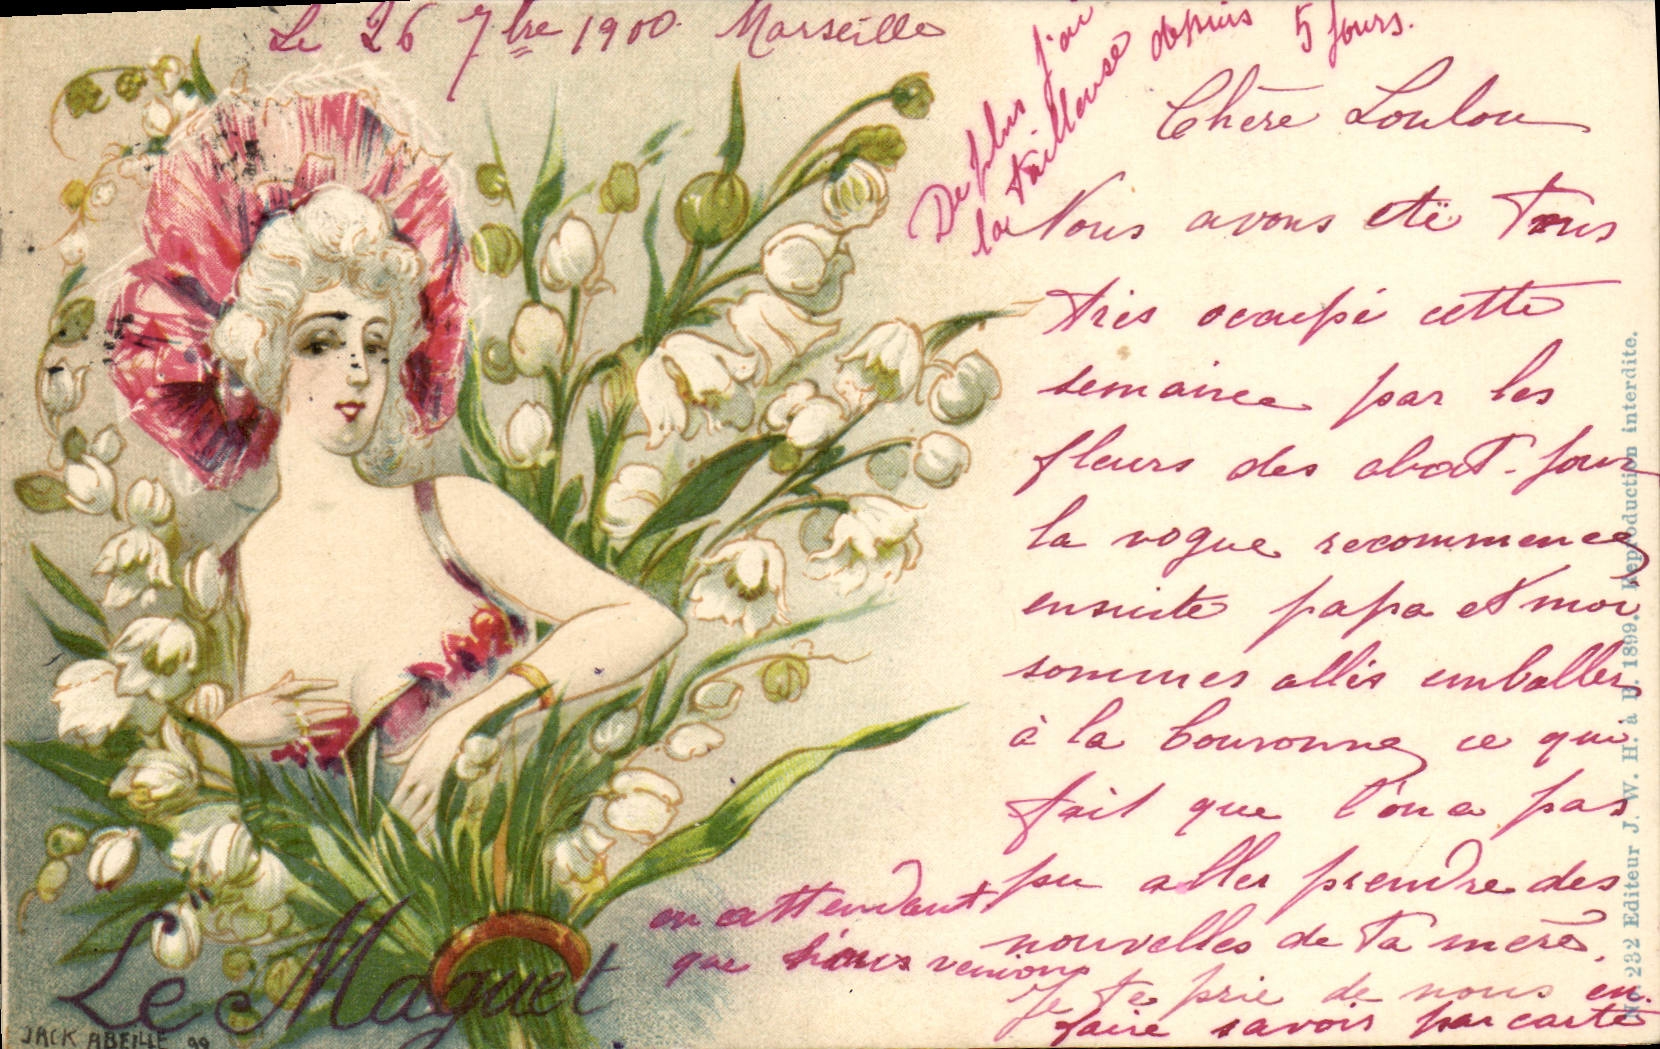 Le 26 7bre 1900. Marseille
De plus j'ai
la tailleuse depuis 5 jours.
Chère Loulou
Nous avons eté Tous
très ocaupé cette
semaine par les
fleurs des abat-jour
la vogue recommence
ensuite papa et moi
sommes allés emballer
à la bouronne ce qui
fait que l'on a pas
pu aller prendre des
nouvelles de Ta mère.
Je te prie de nous en
faire savoir par carte
en attendant
que nous venions
Le Muguet
JACK ABEILLE 99
No. 232 Editeur J. W. H. à P. 1899. Reproduction interdite.